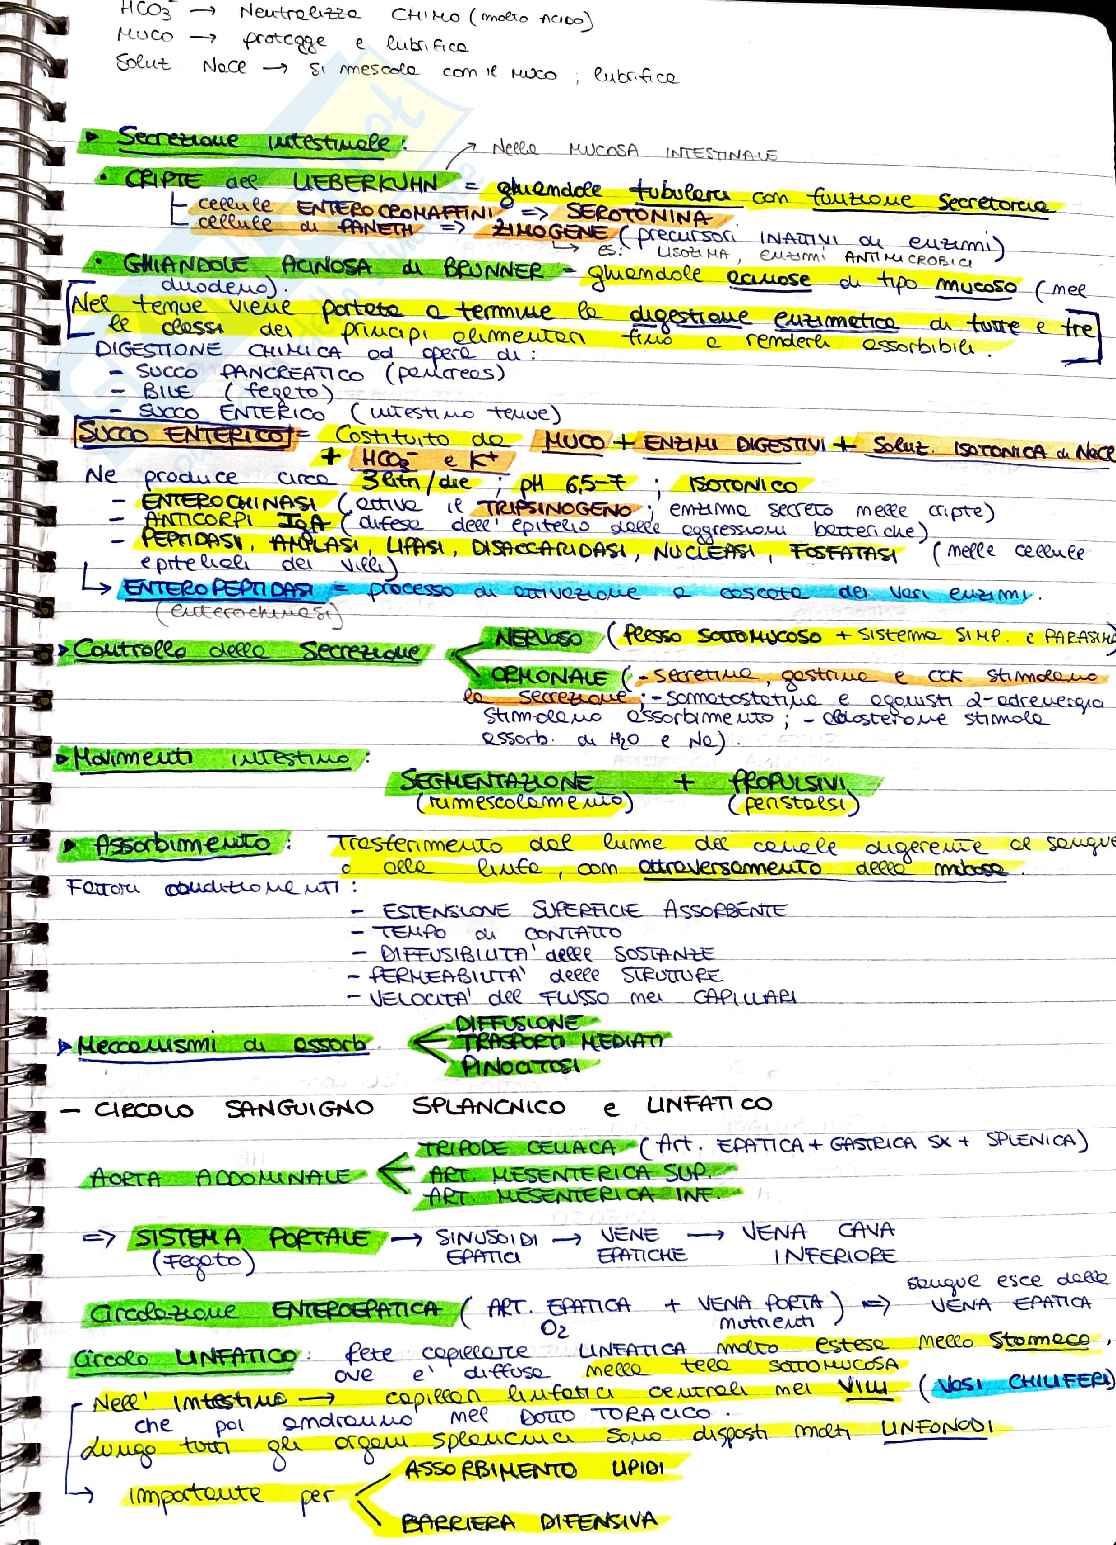 HCO3⁻ → Neutralizza CHIMO (molto ACIDO)
MUCO → protegge e lubrifica
Soluz NaCl → si mescola con il MUCO ; lubrifica
▸ Secrezione intestinale :
→ Nella MUCOSA INTESTINALE
• CRIPTE del LIEBERKUHN = ghiandole tubolari con funzione secretoria
cellule ENTEROCROMAFFINI => SEROTONINA
cellule di PANETH => ZIMOGENE (precursori INATTIVI di enzimi)
↳ es: LISOZIMA, enzimi ANTIMICROBICI
• GHIANDOLE ACINOSA di BRUNNER = ghiandole acinose di tipo mucoso (nel
duodeno).
Nel tenue viene portata a termine la digestione enzimatica di tutte e tre
le classi dei principi alimentari fino a renderli assorbibili.
DIGESTIONE CHIMICA ad opera di :
- SUCCO PANCREATICO (pancreas)
- BILE (fegato)
- SUCCO ENTERICO (intestino tenue)
SUCCO ENTERICO = Costituito da MUCO + ENZIMI DIGESTIVI + Soluz. ISOTONICA di NaCl
+ HCO3⁻ e K⁺
Ne produce circa 3 litri/die ; pH 6,5-7 ; ISOTONICO
- ENTEROCHINASI (attiva il TRIPSINOGENO ; enzima secreto nelle cripte)
- ANTICORPI IgA (difesa dell'epitelio dalle aggressioni batteriche)
- PEPTIDASI, AMILASI, LIPASI, DISACCARIDASI, NUCLEASI, FOSFATASI (nelle cellule
epiteliali dei villi)
↳ ENTEROPEPTIDASI = processo di attivazione a cascata dei vari enzimi.
(enterochinasi)
▸ Controllo della Secrezione
NERVOSO (Plesso SOTTOMUCOSO + Sistema SIMP. e PARASIMP)
ORMONALE (- secretina, gastrina e CCK stimolano
la secrezione ; - somatostatina e agonisti α-adrenergici
stimolano assorbimento ; - aldosterone stimola
assorb. di H2O e Na).
▸ Movimenti intestino :
SEGMENTAZIONE + PROPULSIVI
(rimescolamento) (peristalsi)
▸ Assorbimento : Trasferimento dal lume del canale digerente al sangue
o alla linfa, con attraversamento della mucosa.
Fattori condizionanti :
- ESTENSIONE SUPERFICIE ASSORBENTE
- TEMPO di CONTATTO
- DIFFUSIBILITA' delle SOSTANZE
- PERMEABILITA' delle STRUTTURE
- VELOCITA' del FLUSSO nei CAPILLARI
▸ Meccanismi di assorb.
DIFFUSIONE
TRASPORTI MEDIATI
PINOCITOSI
- CIRCOLO SANGUIGNO SPLANCNICO e LINFATICO
TRIPODE CELIACA (Art. EPATICA + GASTRICA SX + SPLENICA)
AORTA ADDOMINALE
ART. MESENTERICA SUP.
ART. MESENTERICA INF.
=> SISTEMA PORTALE → SINUSOIDI → VENE → VENA CAVA
(Fegato) EPATICI EPATICHE INFERIORE
Circolazione ENTEROEPATICA (ART. EPATICA + VENA PORTA) => sangue esce dalla
O2 nutrienti VENA EPATICA
Circolo LINFATICO : Rete capillare LINFATICA molto estesa nello stomaco,
ove e' diffusa nella tela SOTTOMUCOSA
Nell'intestino → capillari linfatici centrali nei Villi (VASI CHILIFERI)
che poi andranno nel DOTTO TORACICO.
Lungo tutti gli organi splancnici sono disposti molti LINFONODI
↳ importante per
ASSORBIMENTO LIPIDI
BARRIERA DIFENSIVA